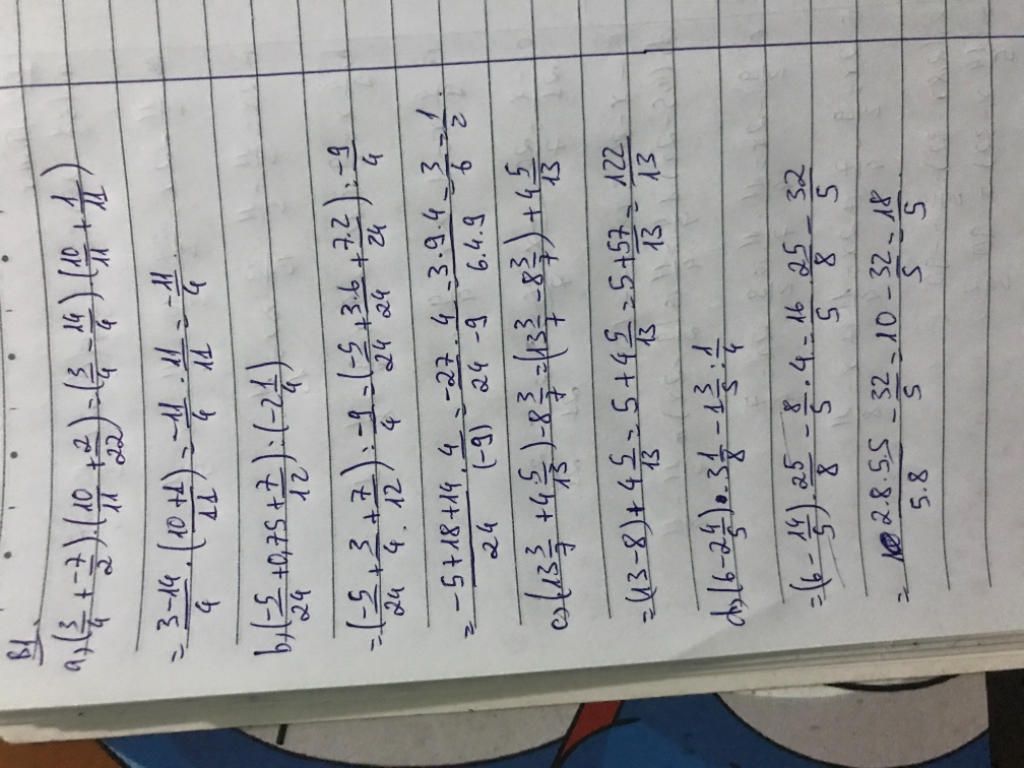 B1.
a, (3/4 + -7/2)(10/11 + 2/22) = (3/4 - 14/4)(10/11 + 1/11)
= 3-14/4 . (10+1/11) = -11/4 . 11/11 = -11/4.
b, (-5/24 + 0,75 + 7/12) : (-2 1/4)
= (-5/24 + 3/4 + 7/12) : -9/4 = (-5/24 + 3.6/24 + 7.2/24) : -9/4
= -5+18+14/24 . 4/(-9) = -27/24 . 4/-9 = 3.9.4/6.4.9 = 3/6 = 1/2.
c, (13 3/7 + 4 5/13) - 8 3/7 = (13 3/7 - 8 3/7) + 4 5/13
= (13-8) + 4 5/13 = 5 + 4 5/13 = 5 + 57/13 = 122/13
d, (6 - 2 4/5) . 3 1/8 - 1 3/5 : 1/4
= (6 - 14/5) . 25/8 - 8/5 . 4 = 16/5 . 25/8 - 32/5
= 2.8.5.5/5.8 - 32/5 = 10 - 32/5 = 18/5.